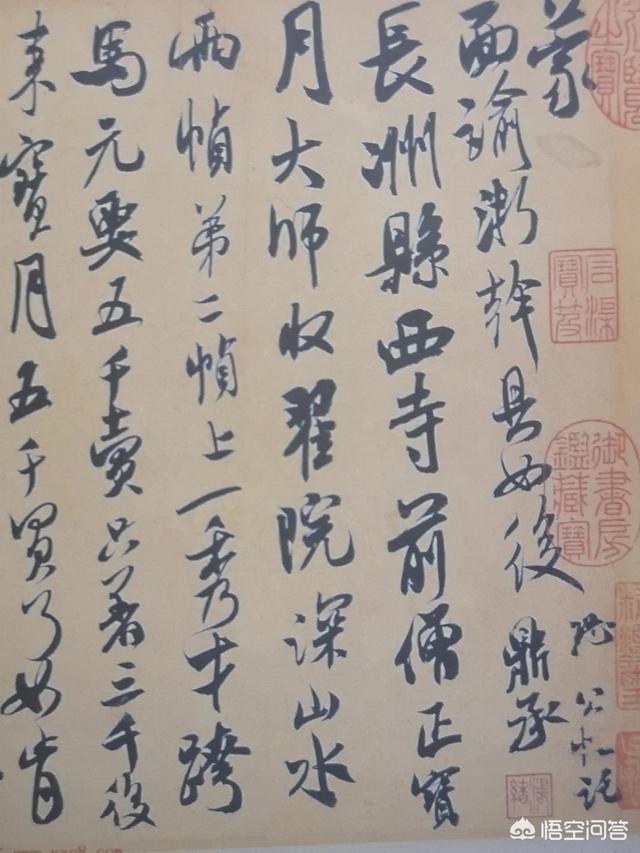 蒙
面諭浙幹具如後 鼎丞
長洲縣西寺前僧正寶
月大師收翟院深山水
兩幀第二幀上一秀才跨
馬元要五千賣只著三千後
來寶月五千買了如肯
石渠寶笈
御書房鑑藏寶
悟空问答